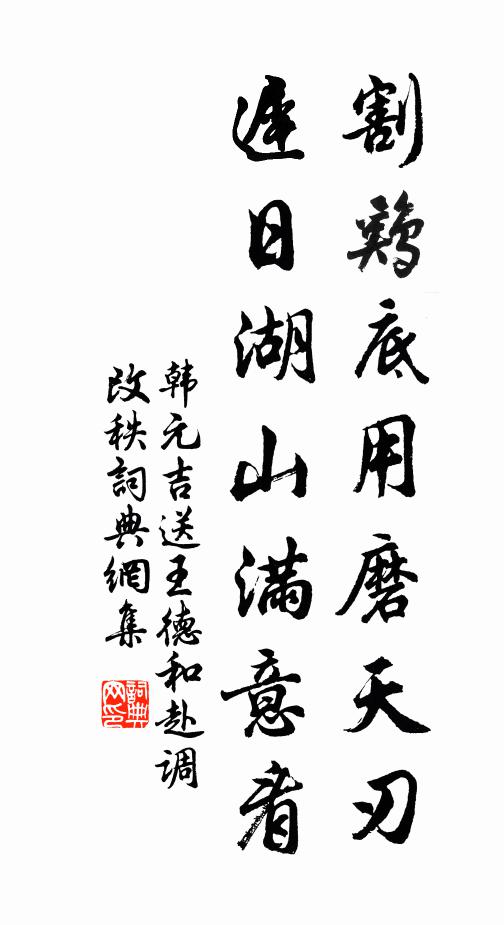 割鷄底用磨天刃
遲日湖山滿意看
韩元吉送王德和赴调
改秩詞典網集
詞典
网印